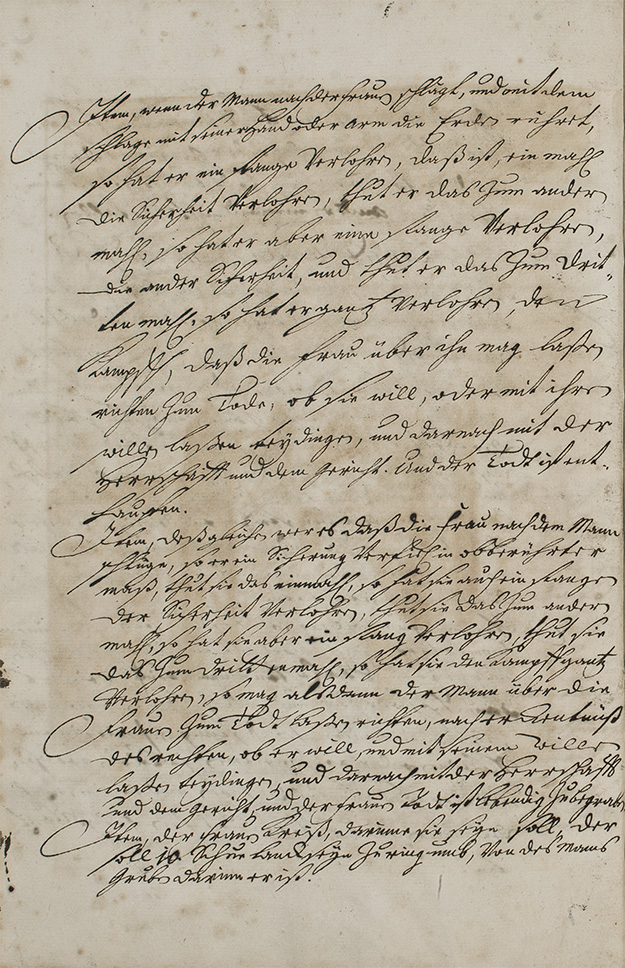 Item, wenn der Mann nach der Frauen schlägt, und mit dem
schlage mit seiner Hand oder arm die Erden rühret,
so hat er ein stange Verlohren, daß ist, ein mahl
die Sicherheit Verlohren, thut er das Zum ander
mahl, so hat er aber eine stange Verlohren,
die ander Sicherheit, und thut er das Zum Drit-
ten mahl, so hat er gantz Verlohren, den
Kampff, daß die Frau über ihn mag laßen
richten Zum Tode, ob sie will, oder mit ihren
willen laßen teydingen, und darnach mit der
Herrschafft und dem Gericht. Und der Todt ist ent-
haupten.
Item, deßgleichen wer es daß die Frau nach dem Mann
schlüge, so er ein Sicherung Verfiel in obberührter
maß, thut sie das einmahl, so hat sie auch ein stange
der Sicherheit Verlohren, thut sie das Zum andern
mahl, so hat sie aber ein stang Verlohren, thut sie
das Zum dritten mahl, so hat sie den Kampff gantz
Verlohren, so mag alsdann der Mann über die
Frauen Zum Todt laßen richten, nach erkentnüß
des rechten, ob er will, und mit seinem willen
laßen teydingen, und darnach mit der Herrschafft
und dem Gericht, und der Frauen Todt ist lebendig Zu begraben
Item, der Frauen Kreiß, darinne sie seyn soll, der
soll 10 Schue lanck seyn Zuring umb, Von des Manns
Gruben darinn er ist.